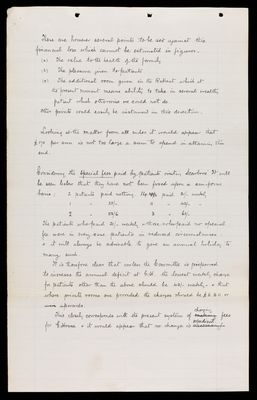 There are however several points to be set against this
financial loss which cannot be estimated in figures.
(a) The value to the health of the family
(b) The pleasure given to patients
(c) The additional room given in the Retreat which at
the present moment means ability to take in several wealthy
patients which otherwise we could not do
Other points could easily be instanced in this direction.
Looking at the matter from all sides it would appear that
per ann is not too large a sum to spend in attaining this
end.
Considering the special fees paid by patients visiting Scarboro it will
be seen below that they have not been fixed upon a uniform
basis; 2 patients paid nothing weekly
The patients who paid weekly & those who paid no special
fee were in very many patients in reduced circumstances
& it will always be advisable to give an annual holiday to
many such.
It is therefore clear that unless the Committee is prepared
to increase the annual deficit at the lowest weekly charge
for patients other than the above should be weekly & that
where private rooms are provided the charges should be or
upwards.
This closely corresponds with the present system of charging fees
for & it would appear that no change is